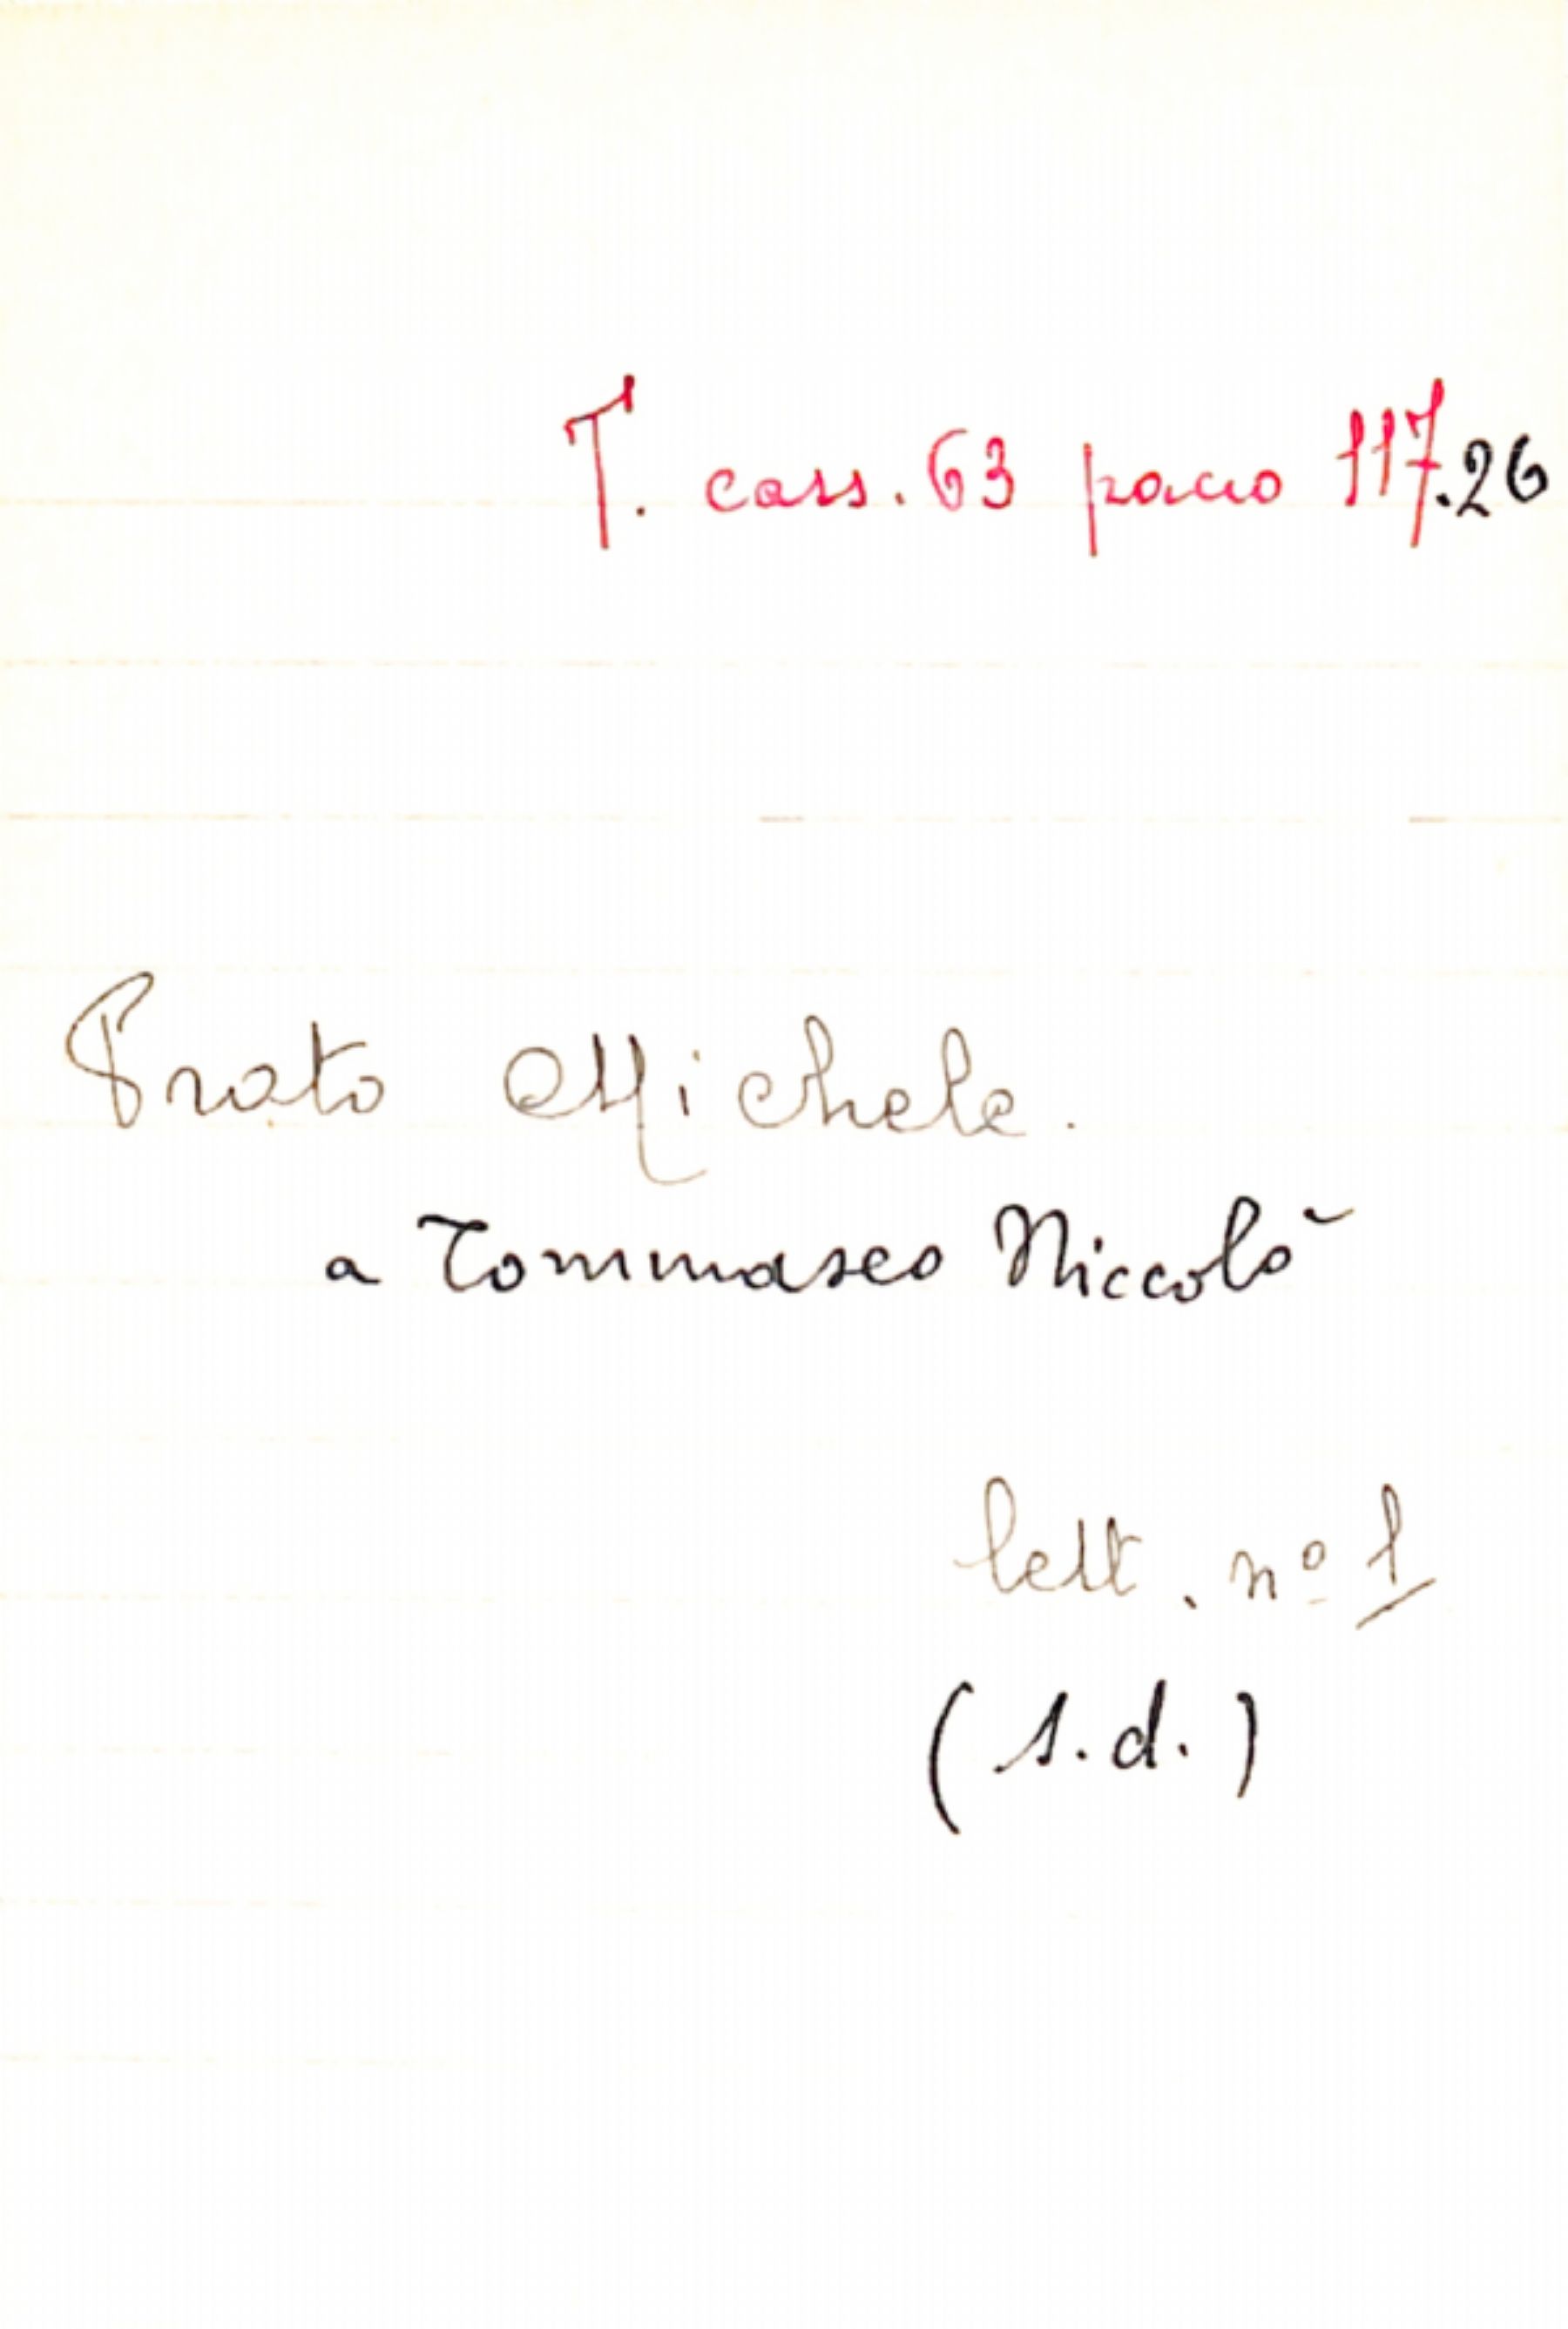 T. cass. 63 pacco 117.26
Prato Michele.
a Tommaseo Niccolò
lett. nº 1
(s.d.)